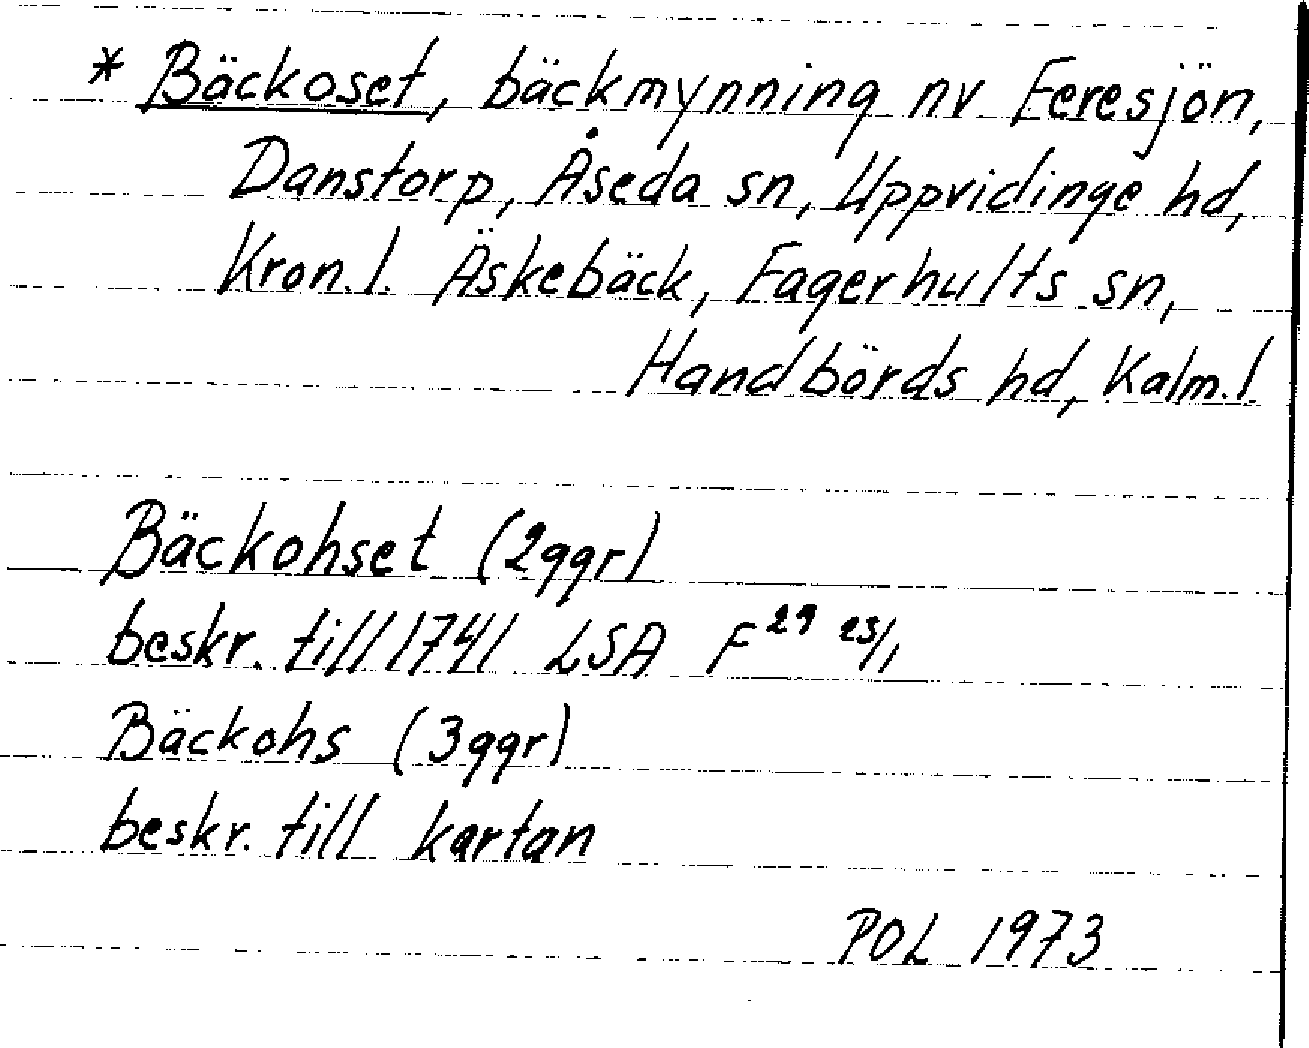 * Bäckoset, bäckmynning nv Feresjön,
Danstorp, Åseda sn, Uppvidinge hd,
Kron. l. Äskebäck, Fagerhults sn,
Handbörds hd, Kalm. l.
Bäckohset (2ggr)
beskr. till 1741 LSA F 29 23/1
Bäckohs (3ggr)
beskr. till kartan
POL 1973